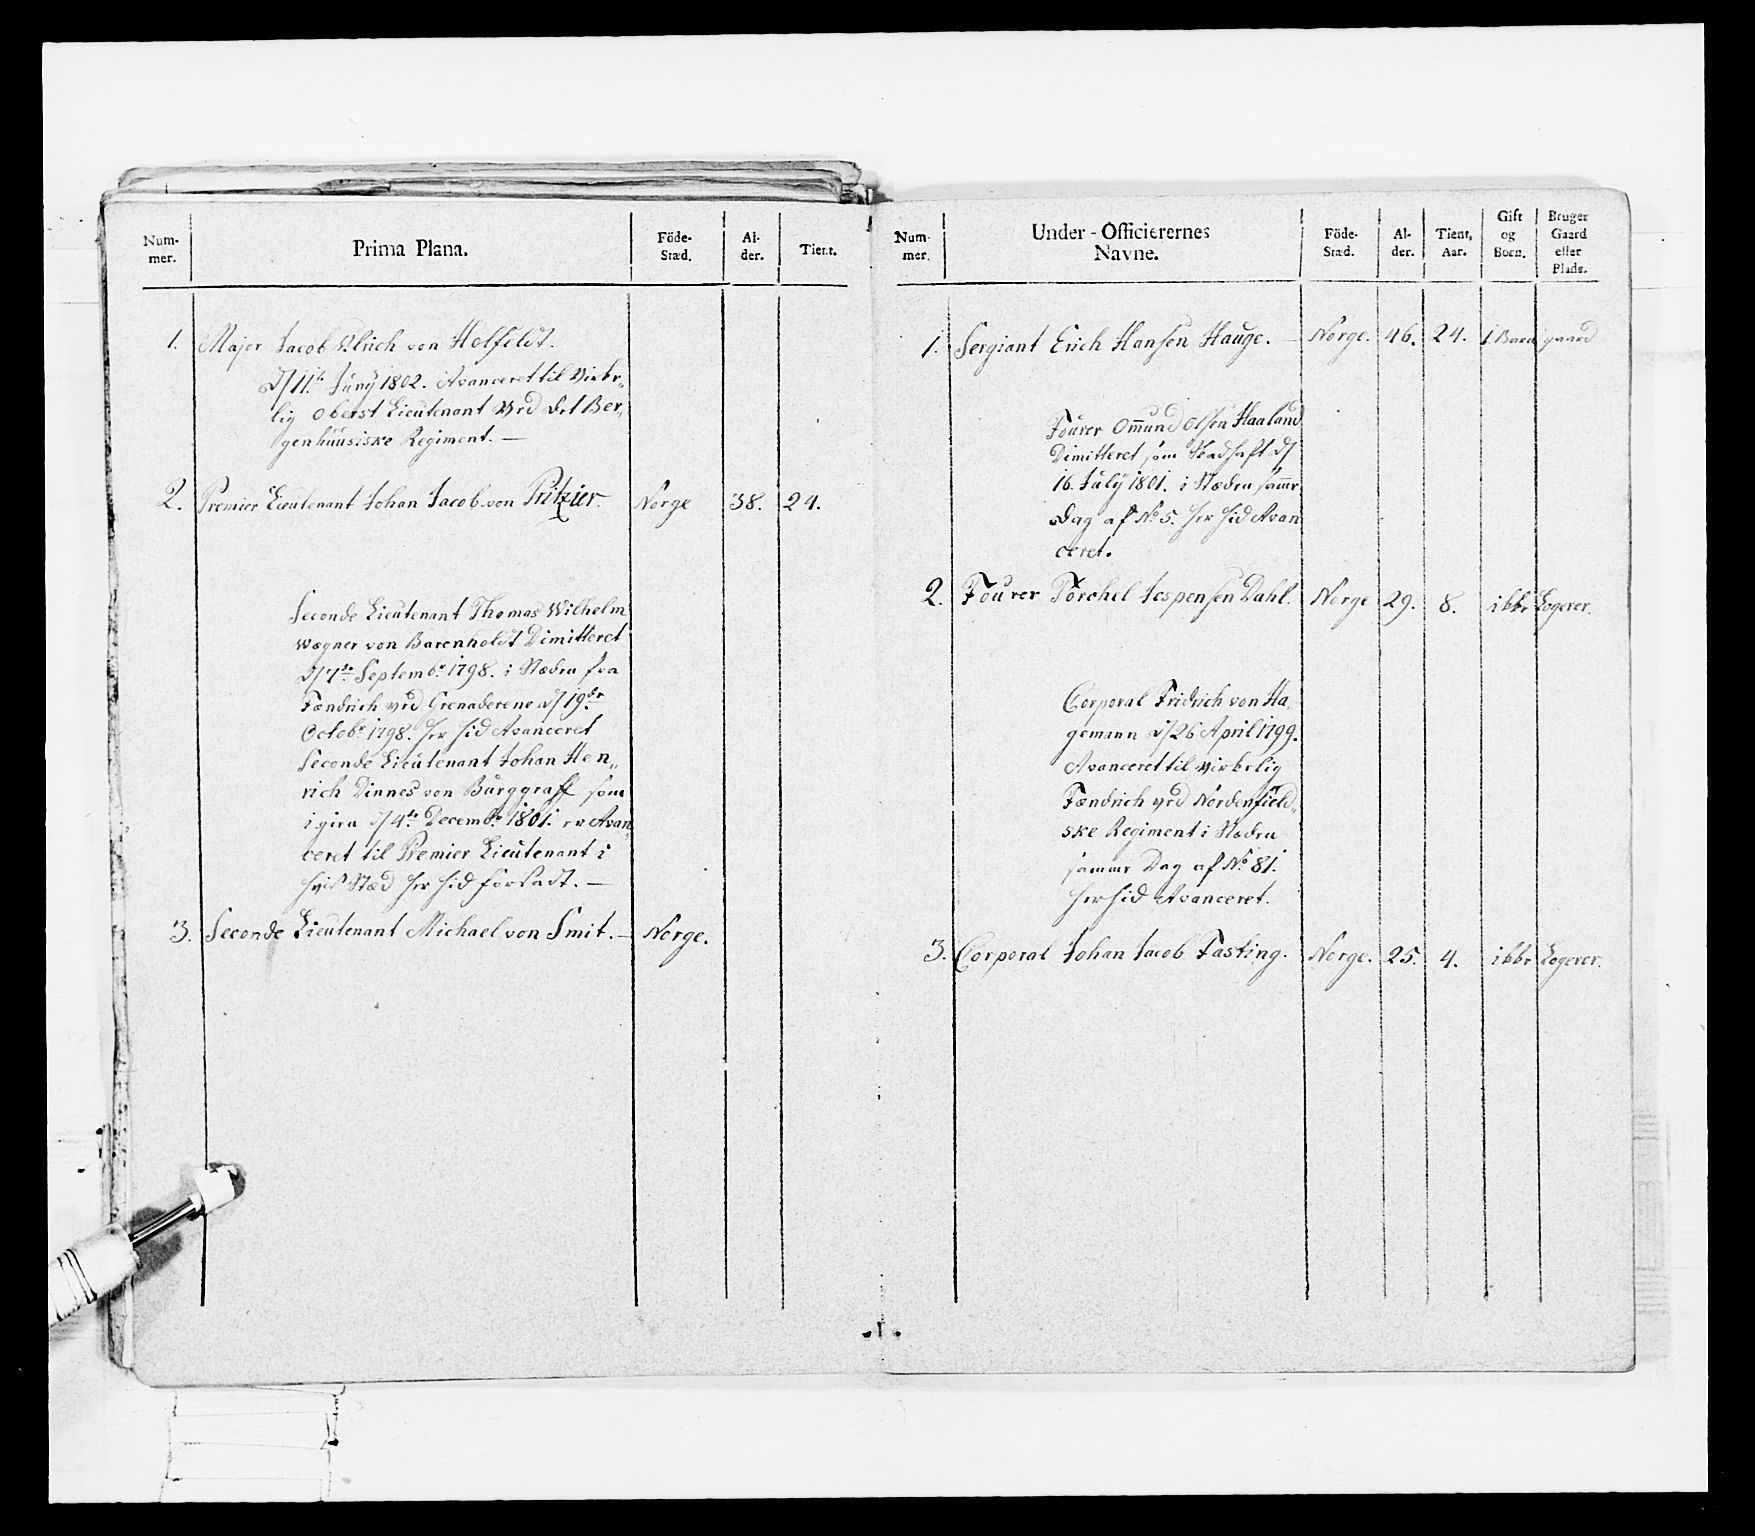 Num-
mer.
Prima Plana.
Föde-
Stæd.
Al-
der.
Tient.
1. Major Jacob Ulrich von Holfeldt.
d/11te Juny 1802. Avanceret til Virke-
lig Oberst Lieutenant ved det Ber-
genhuusiske Regiment. —
2. Premier Lieutenant Johan Jacob von Pritzier. Norge 38. 24.
Seconde Lieutenant Thomas Wilhelm
Wagner von Barenholdt Dimitteret
d/7de Septembr 1798. i Stæden fra
Fændrich ved Grenaderene d/19de
Octobr 1798. her hid Avanceret
Seconde Lieutenant Johan Hen-
rich Dinnes von Burggraff som
igien d/4de Decembr 1801. er Avan-
ceret til Premier Lieutenant i
hvis Stæd her hid forsadt. —
3. Seconde Lieutenant Michael von Smit. — Norge.
Num-
mer.
Under-Officierernes
Navne.
Föde-
Stæd.
Al-
der.
Tient,
Aar.
Gift
og
Boen.
Bruger
Gaard
eller
Plads.
1. Sergiant Erich Hansen Hauge. — Norge. 46. 24. 1 Barn gaard
Fourer Omund Olsen Haaland
Dimitteret som d/
16. July 1801. i Stæden samme
Dag af No 5. her hid Avan
ceret.
2. Fourer Torchel Jespensen Dahl. Norge 29. 8. ikke Logerer.
Corporal Fridrich von Ha-
gemann d/26 April 1799.
Avanceret til Virkelig
Fændrich ved Nordenfield-
ske Regiment i Stæden
samme Dag af No 81.
her hid Avanceret.
3. Corporal Johan Jacob Fasting. Norge. 25. 4. ikke Logerer.